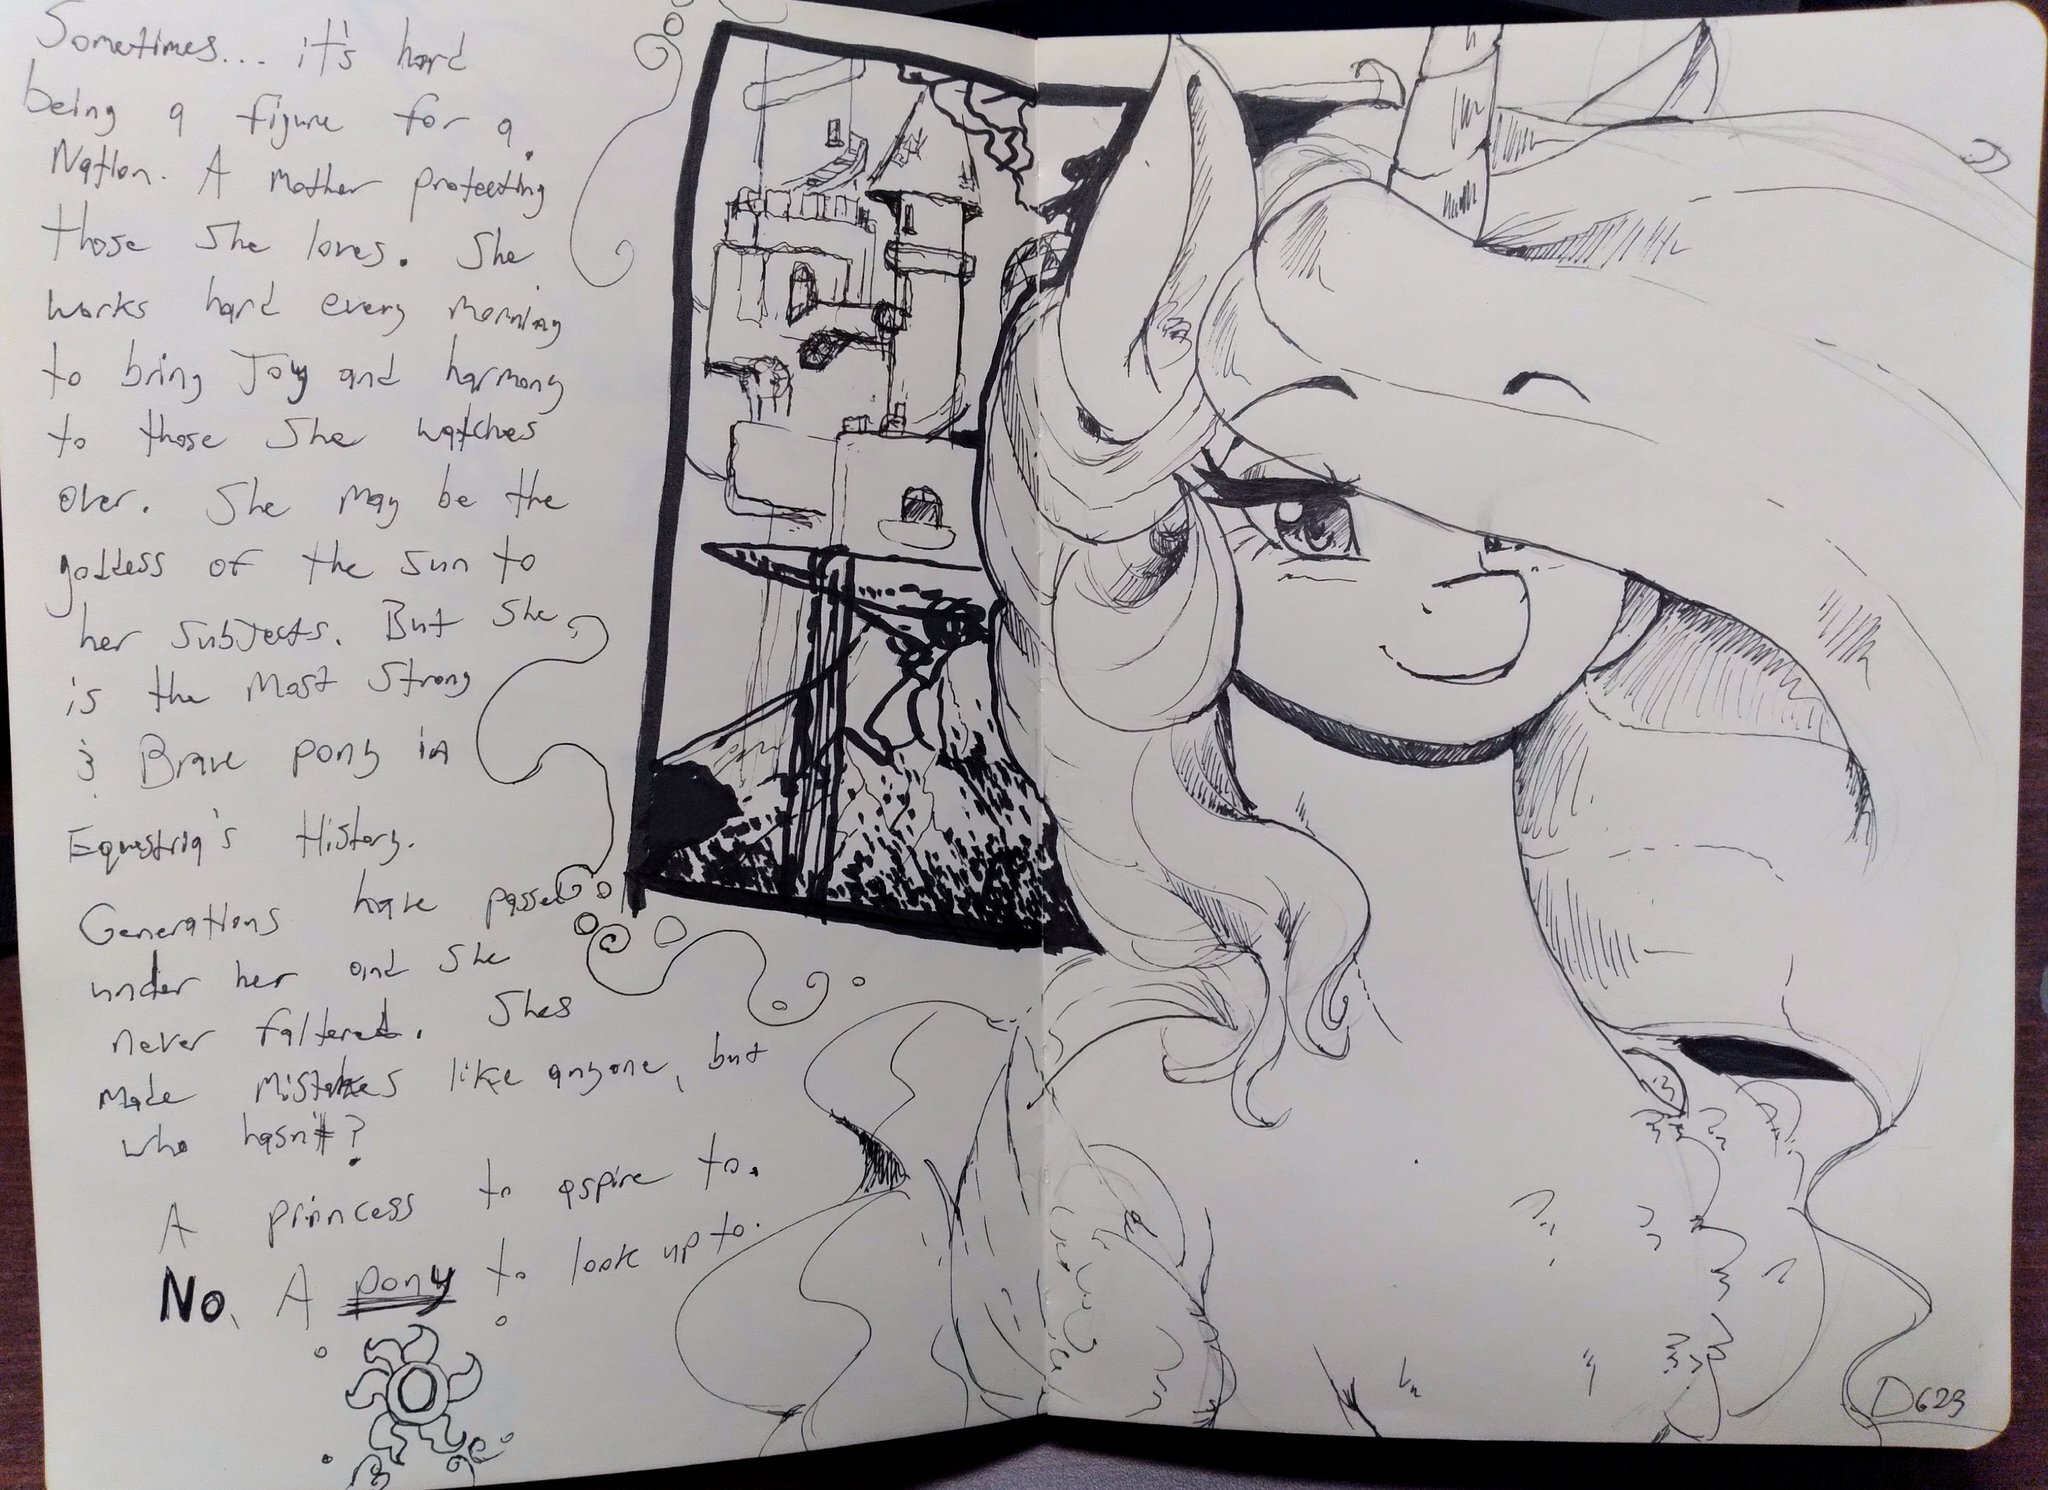 Sometimes... it's hard
being a figure for a
Nation. A mother protecting
those she loves. She
works hard every morning
to bring Joy and harmony
to those she watches
over. She may be the
goddess of the sun to
her subjects. But she
is the most strong
& Brave pony in
Equestria's History.
Generations have passed
under her and she
never faltered. Shes
made mistakes like anyone, but
who hasn't?
A princess to aspire to.
No. A pony to look up to.
D623